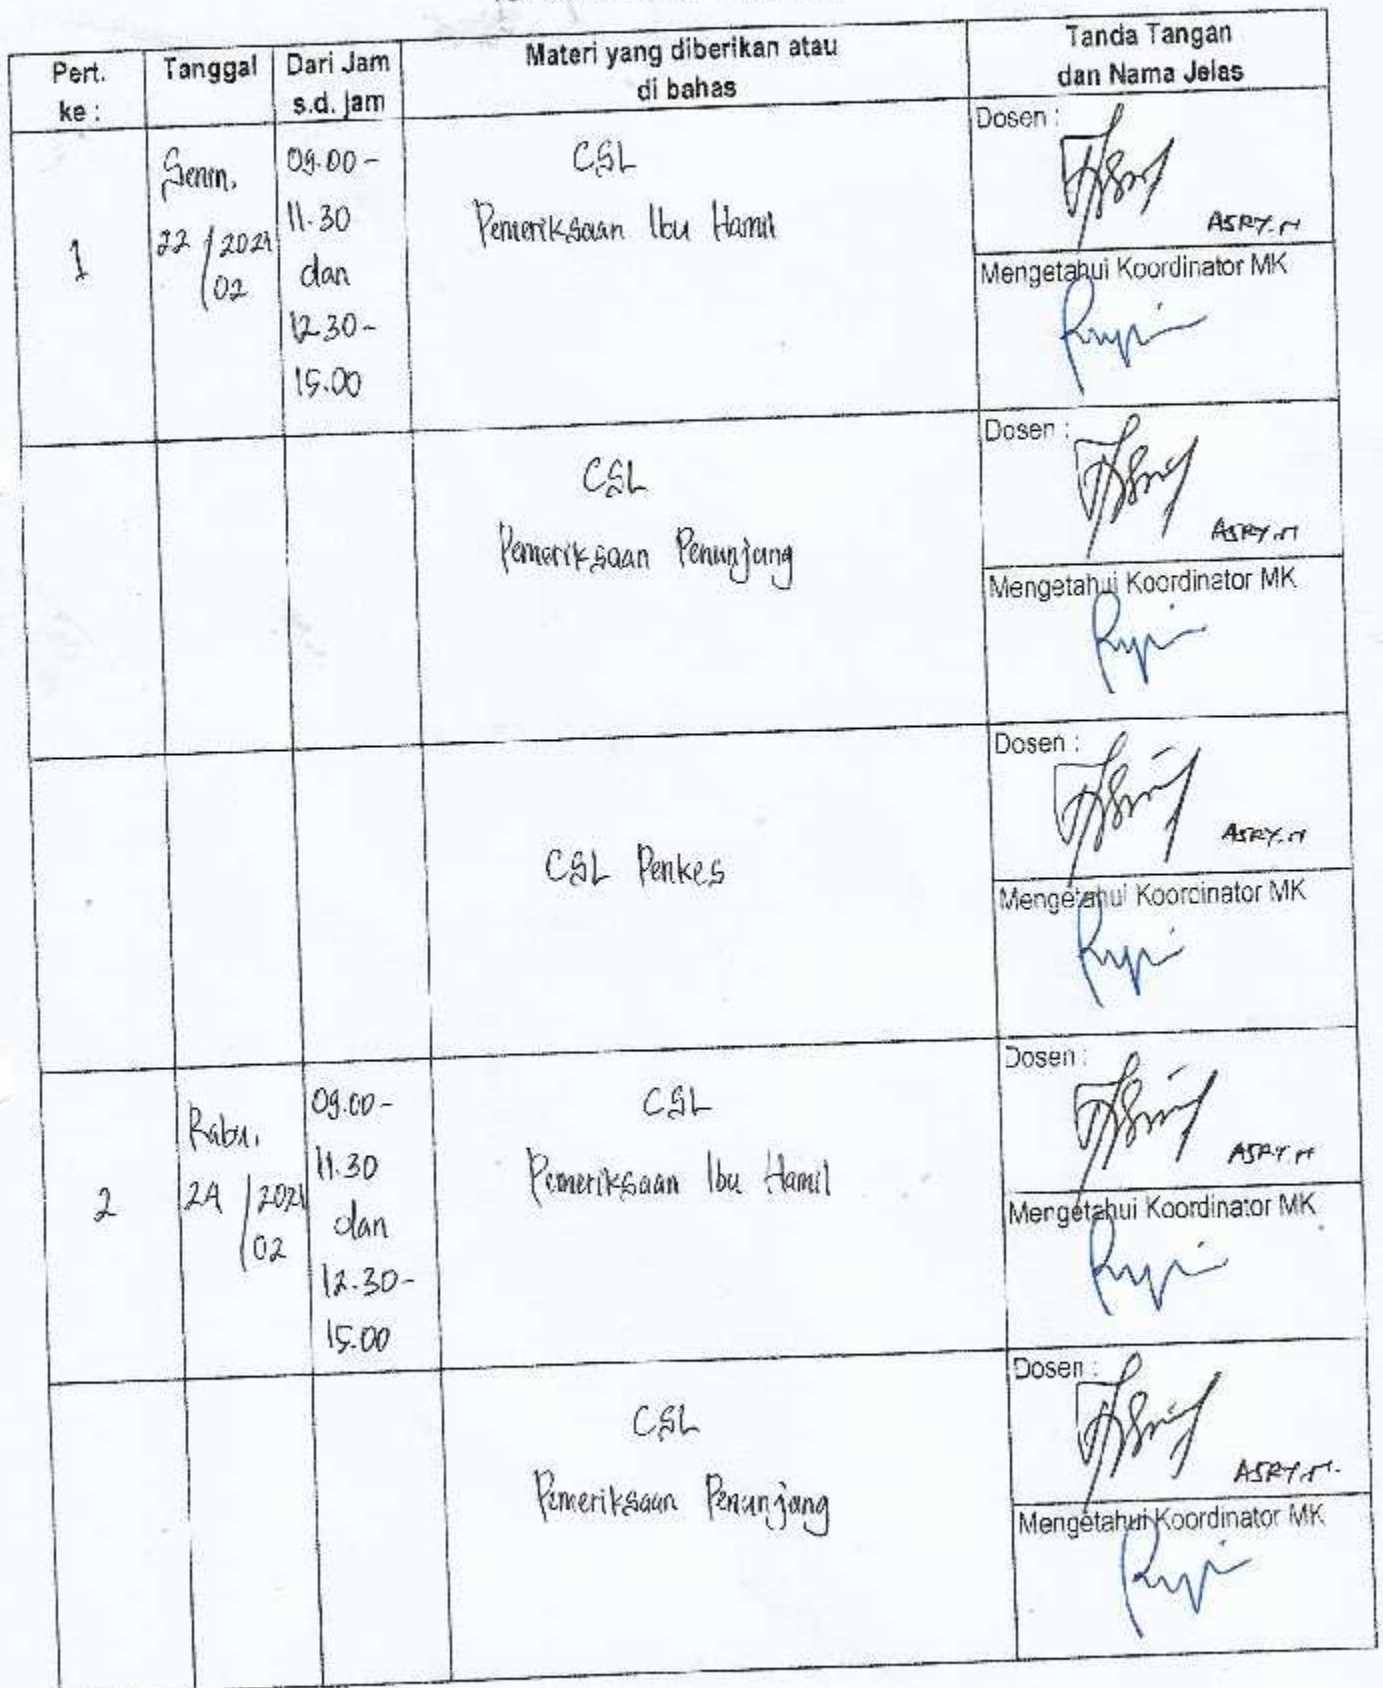 Pert.
ke :
Tanggal
Dari Jam
s.d. jam
Materi yang diberikan atau
di bahas
Tanda Tangan
dan Nama Jelas
1
Senin,
22/2021
/02
09.00 -
11.30
dan
12.30 -
15.00
CSL
Pemeriksaan Ibu Hamil
Dosen :
ASRY.N
Mengetahui Koordinator MK
CSL
Pemeriksaan Penunjang
Dosen :
ASRY.N
Mengetahui Koordinator MK
CSL Penkes
Dosen :
ASRY.N
Mengetahui Koordinator MK
2
Rabu,
24/2021
/02
09.00 -
11.30
dan
12.30 -
15.00
CSL
Pemeriksaan Ibu Hamil
Dosen :
ASRY.N
Mengetahui Koordinator MK
CSL
Pemeriksaan Penunjang
Dosen :
ASRY.N.
Mengetahui Koordinator MK